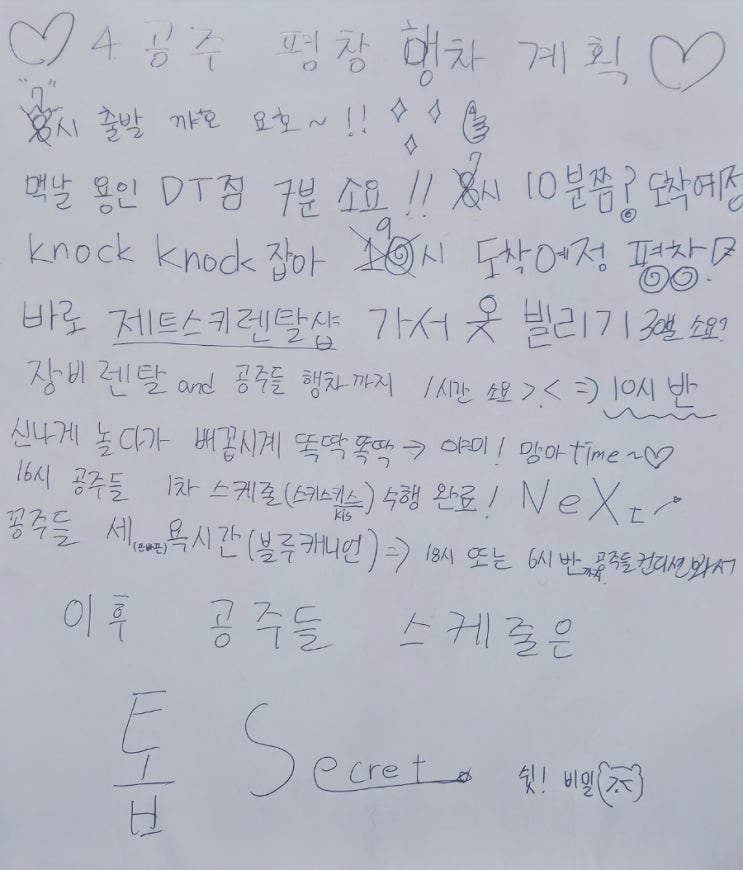 ♡ 4 공주 평창 행차 계획 ♡
"7"시 출발 꺄호 요호~!!
맥날 용인 DT점 7분 소요!! 7시 10분쯤? 도착예정
knock knock 잡아 9시 도착예정 평창
바로 제트스키렌탈샵 가서 옷 빌리기 30분 소요?
장비 렌탈 and 공주들 행차까지 1시간 소요 >.< => 10시 반
신나게 놀다가 배꼽시계 똑딱똑딱 → 야미! 맘마 time~♡
16시 공주들 1차 스케줄(스키스키스 kis) 수행 완료! NeXt
꽁주들 세욕시간(블루캐니언) => 18시 또는 6시 반까지 공주들 컨디션 봐서
이후 공주들 스케줄은
톱 Secret. 쉿! 비밀